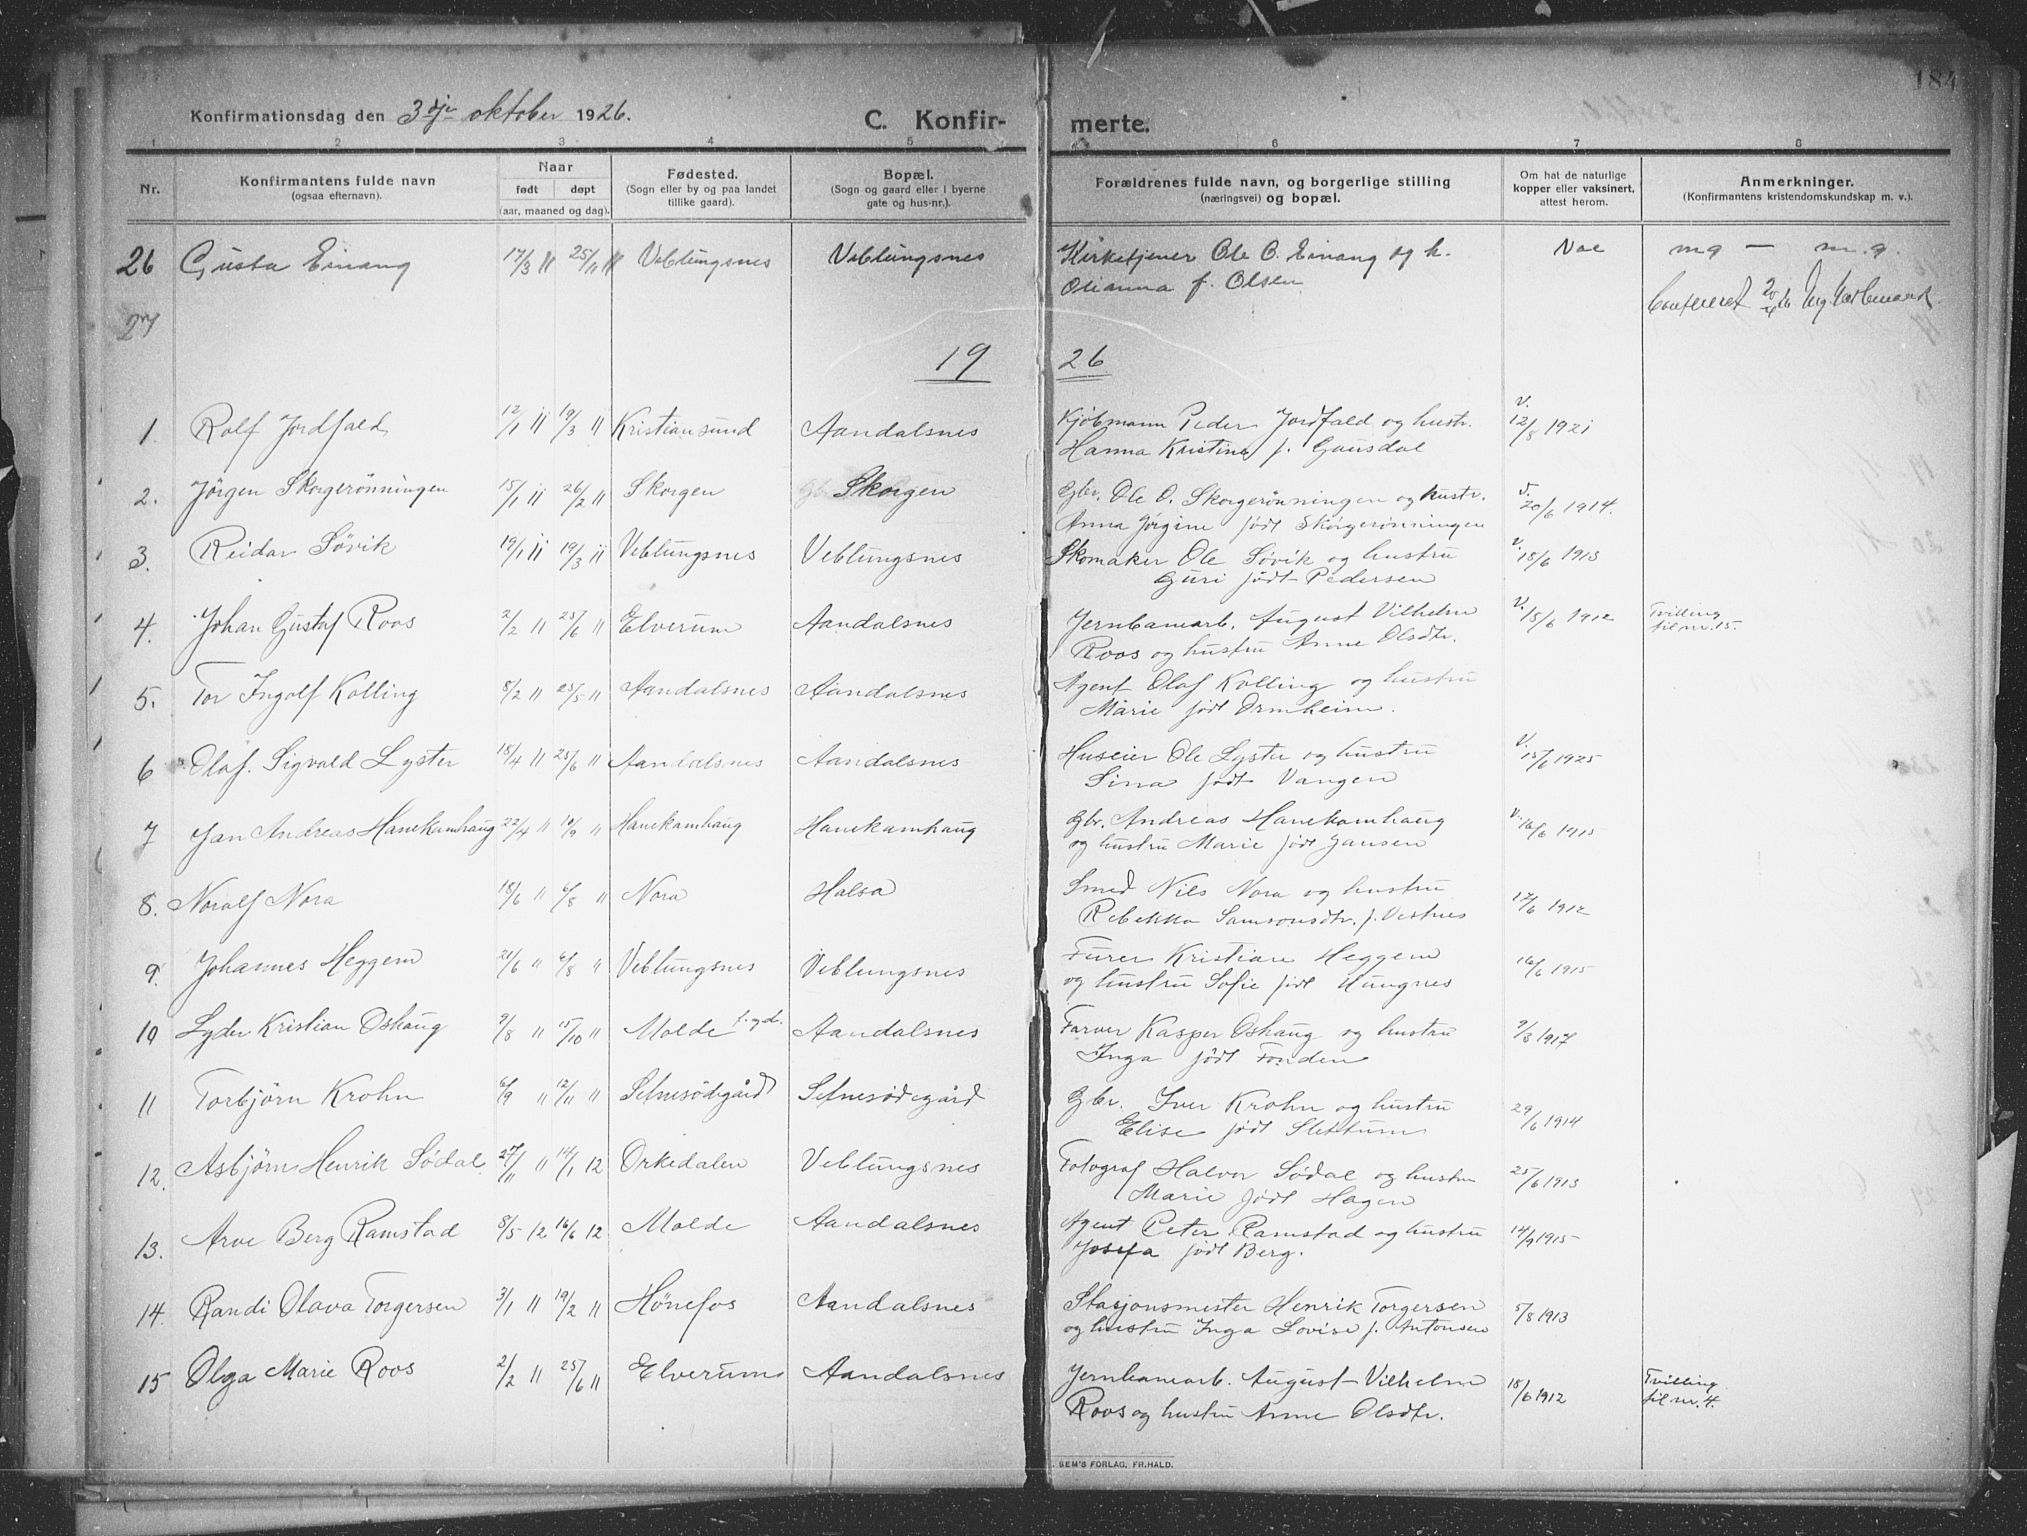 184
Konfirmationsdag den 3dje oktober 1926.
C. Konfir-
merte.
1 2 3 4 5 6 7 8
Nr.
Konfirmantens fulde navn
(ogsaa efternavn).
Naar
født døpt
(aar, maaned og dag).
Fødested.
(Sogn eller by og paa landet
tillike gaard).
Bopæl.
(Sogn og gaard eller i byerne
gate og hus-nr.).
Forældrenes fulde navn, og borgerlige stilling
(næringsvei) og bopæl.
Om hat de naturlige
kopper eller vaksinert,
attest herom.
Anmerkninger.
(Konfirmantens kristendomskundskap m. v.).
26 Gusta Einang 17/3 11 25/11 11 Veblungsnes Veblungsnes Kirketjener Ole O. Einang og h. Vac mg — m.g.
Olianna f. Olsen
Confereret
19 26
1. Rolf Jordfald 12/1 11 19/3 11 Kristiansund Aandalsnes Kjøbmann Peder Jordfald og hustr. v. 12/8 1921
Hanna Kristine f. Gausdal
2. Jørgen Skorgerønningen 15/1 11 26/2 11 Skorgen Skorgen Gbr. Ole O. Skorgerønningen og hustr. v. 20/6 1914.
Anna Jørgine født Skorgerønningen
3. Reidar Søvik 19/1 11 19/3 11 Veblungsnes Veblungsnes Skomaker Ole Søvik og hustru v. 18/6 1913
Guri født Pedersen
4. Johan Gustaf Roos 2/2 11 25/6 11 Elverum Aandalsnes Jernbanearb. August Vilhelm v. 18/6 1912 Tvilling
Roos og hustru Anne Olsdtr. til nr. 15.
5. Tor Ingolf Kolling 8/2 11 25/5 11 Aandalsnes Aandalsnes Agent Olaf Kolling og hustru
Marie født Ormheim.
6 Olaf Sigvald Lyster 18/4 11 25/6 11 Aandalsnes Aandalsnes Huseier Ole Lyster og hustru v. 15/6 1925
Sina født Vangen
7 Jan Andreas Hanekamhaug 22/4 11 10/9 11 Hanekamhaug Hanekamhaug Gbr. Andreas Hanekamhaug v. 16/6 1915
og hustru Marie født Jansen
8. Noralf Nora 18/6 " 6/8 " Nora Halsa Smed Nils Nora og hustru 17/6 1912
Rebekka Samsonsdtr. f. Vestnes
9. Johannes Heggem 21/6 " 6/8 " Veblungsnes Veblungsnes Furer Kristian Heggem 16/6 1915
og hustru Sofie født
10 Lyder Kristian Oshaug 9/8 " 15/10 " Molde Aandalsnes Farver Kasper Oshaug og hustru 9/8 1917
Inga født Fonden
11 Torbjørn Krohn 6/9 " 12/11 " Setnesødegård Setnesødegård Gbr. Iver Krohn og hustru 29/6 1914
Elise født Slettum
12. Asbjørn Henrik Sødal 27/11 " 14/1 12 Orkedalen Veblungsnes Fotograf Halvor Sødal og hustru 25/6 1913
Marie født Hagen
13. Arve Berg Ramstad 8/5 12 16/6 12 Molde Aandalsnes Agent Peter Ramstad og hustru 14/9 1915
Josefa født Berg.
14. Randi Olava Torgersen 3/1 11 19/2 11 Hønefos Aandalsnes Stasjonsmester Henrik Torgersen 5/8 1913
og hustru Inga Lovise f. Antonsen
15 Olga Marie Roos 2/2 11 25/6 11 Elverum Aandalsnes Jernbanearb. August Vilhelm 18/6 1912 Tvilling
Roos og hustru Anne Olsdtr. til nr. 4.
SEM'S FORLAG, FR.HALD.